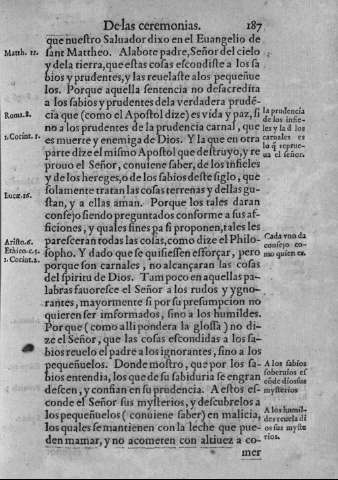 De las ceremonias. 187
que nuestro Saluador dixo en el Euangelio de
Matth. 11.
sant Mattheo. Alabote padre, Señor del cielo
y dela tierra, que estas cosas escondiste a los sa
bios y prudentes, y las reuelaste alos pequeñue
los. Porque aquella sentencia no desacredita
a los sabios y prudentes dela verdadera prudẽ
Roma. 8.
cia que (como el Apostol dize) es vida y paz, si
la prudencia
de los infie-
les y la d los
carnales es
la q̃ reprue-
ua el señor.
no a los prudentes de la prudencia carnal, que
1. Corint. 1.
es muerte y enemiga de Dios. Y la que en otra
parte dize el mismo Apostol que destruyo, y re
prouo el Señor, conuiene saber, de los infieles
y de los hereges, o de los sabios deste siglo, que
Lucæ. 16.
solamente tratan las cosas terrenas y dellas gu-
stan, y a ellas aman. Porque los tales daran
consejo siendo preguntados conforme a sus af-
ficiones, y quales fines pa si proponen, tales les
Aristo. 6.
Ethico. c. 5.
1. Corint. 2.
pareseran todas las cosas, como dize el Philo-
Cada vno da
consejo co-
mo quien es.
sopho. Y dado que se quisiessen esforçar, pero
porque son carnales, no alcançaran las cosas
del spiritu de Dios. Tam poco en aquellas pa-
labras fauoresce el Señor a los rudos y igno-
rantes, mayormente si por su presumpcion no
quieren ser imformados, sino a los humildes.
Por que (como alli pondera la glossa) no di-
ze el Señor, que las cosas escondidas a los sa-
bios reuelo el padre a los ignorantes, sino a los
pequeñuelos. Donde mostro, que por los sa-
A los sabios
soberuios es
cõde dios sus
mysterios
bios entendia, los que de su sabiduria se engran
descen, y confian en su prudencia. A estos es-
conde el Señor sus mysterios, y descubrelos a
A los humil-
des reuela di
os sus myste
rios.
los pequeñuelos (conuiene saber) en malicia,
los quales se mantienen con la leche que pue-
den mamar, y no acometen con altiuez a co-
mer